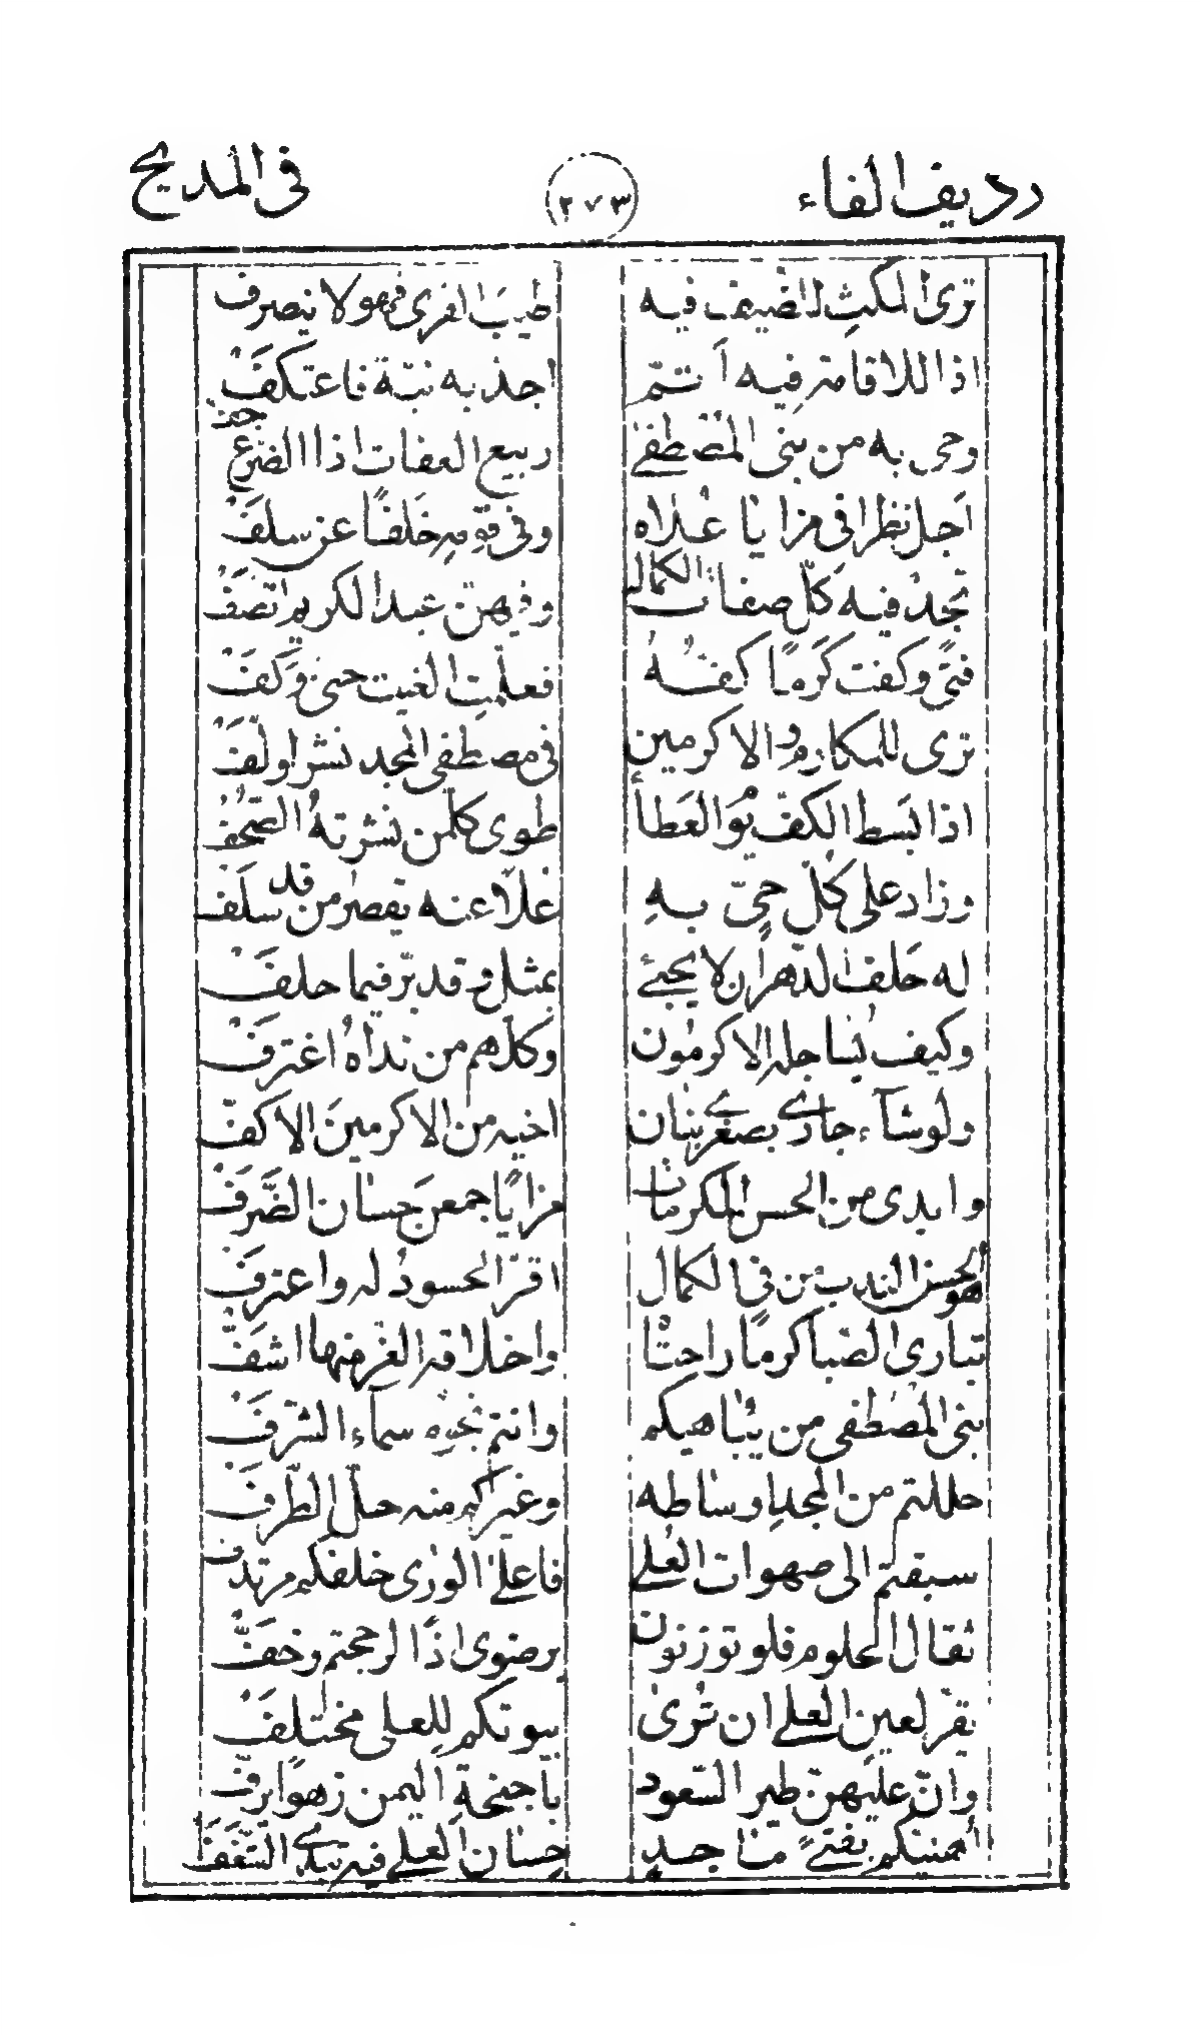 رديف الفاء ٢٧٣ فى المديح
ترى المكث للضيف فيه طيب القرى فهو لا ينصرف
اذا للاقامة فيه أتمّ اجذ به نيّة فاعتكفْ
وحى به من بنى المصطفى ربيع العفات اذا الضرع جفّ
اجل نظرا فى مزايا علاه وفى قومه خلفًا عن سلفْ
تجد فيه كلّ صفات الكمال وفيهنّ عبد الكريم اتصفْ
فتى وكفت كرمًا كفّه فعلّمت الغيث حتى وكفْ
ترى للمكارم والاكرمين فى مصطفى المجد نشرا ولفّ
اذا بسط الكفّ يوم العطاء طوى كلمن نشرته الصحف
وزاد على كلّ حىّ به علاً عنه يقصر من قد سلف
له حلف الدّهر ان لا يجئ بمثل وقد برّ فيما حلفْ
وكيف يساجله الاكرمون وكلّهم من نداه اغترفْ
ولو شآء جارى بصغرى بنان اخيه من الاكرمين الاكفّ
وابدى من الحسن المكرمات مزايًا جمعن حسان الطُّرف
هو الحسن الندب من فى الكمال اقرّ الحسود له واعترفْ
تبارى الصبا كرمًا راحتا واخلاقه الغر منها اشفّ
بنى المصطفى من يباهيكم وانتم نجوم سماء الشرفْ
حللتم من المجد اوساطه وغيركم منه حلّ الطرفْ
سبقتم الى صهوات العلى فاعلى الورى خلفكم مرتدف
ثقال الحلوم فلو توزنون برضوى اذًا لرجحتم وخفّ
يقرّ لعين العلى ان ترى بيوتكم للعلى مختلفْ
وانّ عليهنّ طير السّعود باجنحة اليمن زهوًا يرفّ
أهنيكم بفتى ماجد حسان العلى فيه تبدى الشغف